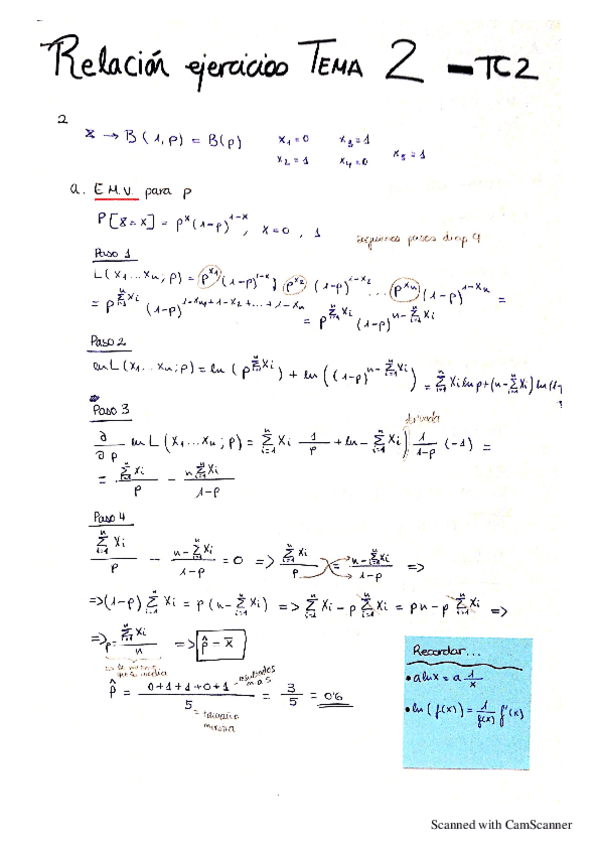 Relación ejercicios TEMA 2 - TC2
2
X → B(1,p) = B(p) x₁=0 x₃=1 x₅=1
x₂=1 x₄=0
a. E.M.V. para p
P[X=x] = pˣ(1-p)¹⁻ˣ, x=0, 1
seguimos pasos diap 9
Paso 1
L(x₁...xₙ; p) = p^x₁ (1-p)^1-x₁ p^x₂ (1-p)^1-x₂ ... p^xₙ (1-p)^1-xₙ =
= p^∑xᵢ (1-p)^1-x₁+1-x₂+...+1-xₙ
= p^∑xᵢ (1-p)^n-∑xᵢ
Paso 2
ln L(x₁...xₙ; p) = ln (p^∑xᵢ) + ln ((1-p)^n-∑xᵢ) = ∑xᵢ ln p + (n-∑xᵢ) ln (1-p
Paso 3
derivada
∂/∂p ln L(x₁...xₙ; p) = ∑xᵢ 1/p + (n - ∑xᵢ) 1/1-p (-1) =
= ∑xᵢ/p - n-∑xᵢ/1-p
Paso 4
∑xᵢ/p - n-∑xᵢ/1-p = 0 => ∑xᵢ/p = n-∑xᵢ/1-p =>
=> (1-p) ∑xᵢ = p(n-∑xᵢ) => ∑xᵢ - p∑xᵢ = pn - p∑xᵢ =>
=> p = ∑xᵢ/n => p̂ - x̄
p̂ = 0+1+1+0+1/5 = 3/5 = 0'6
resultados
m.a.s
= tamaño
muestra
Recordar...
• a lnx = a 1/x
• ln(f(x)) = 1/f(x) f'(x)
Scanned with CamScanner